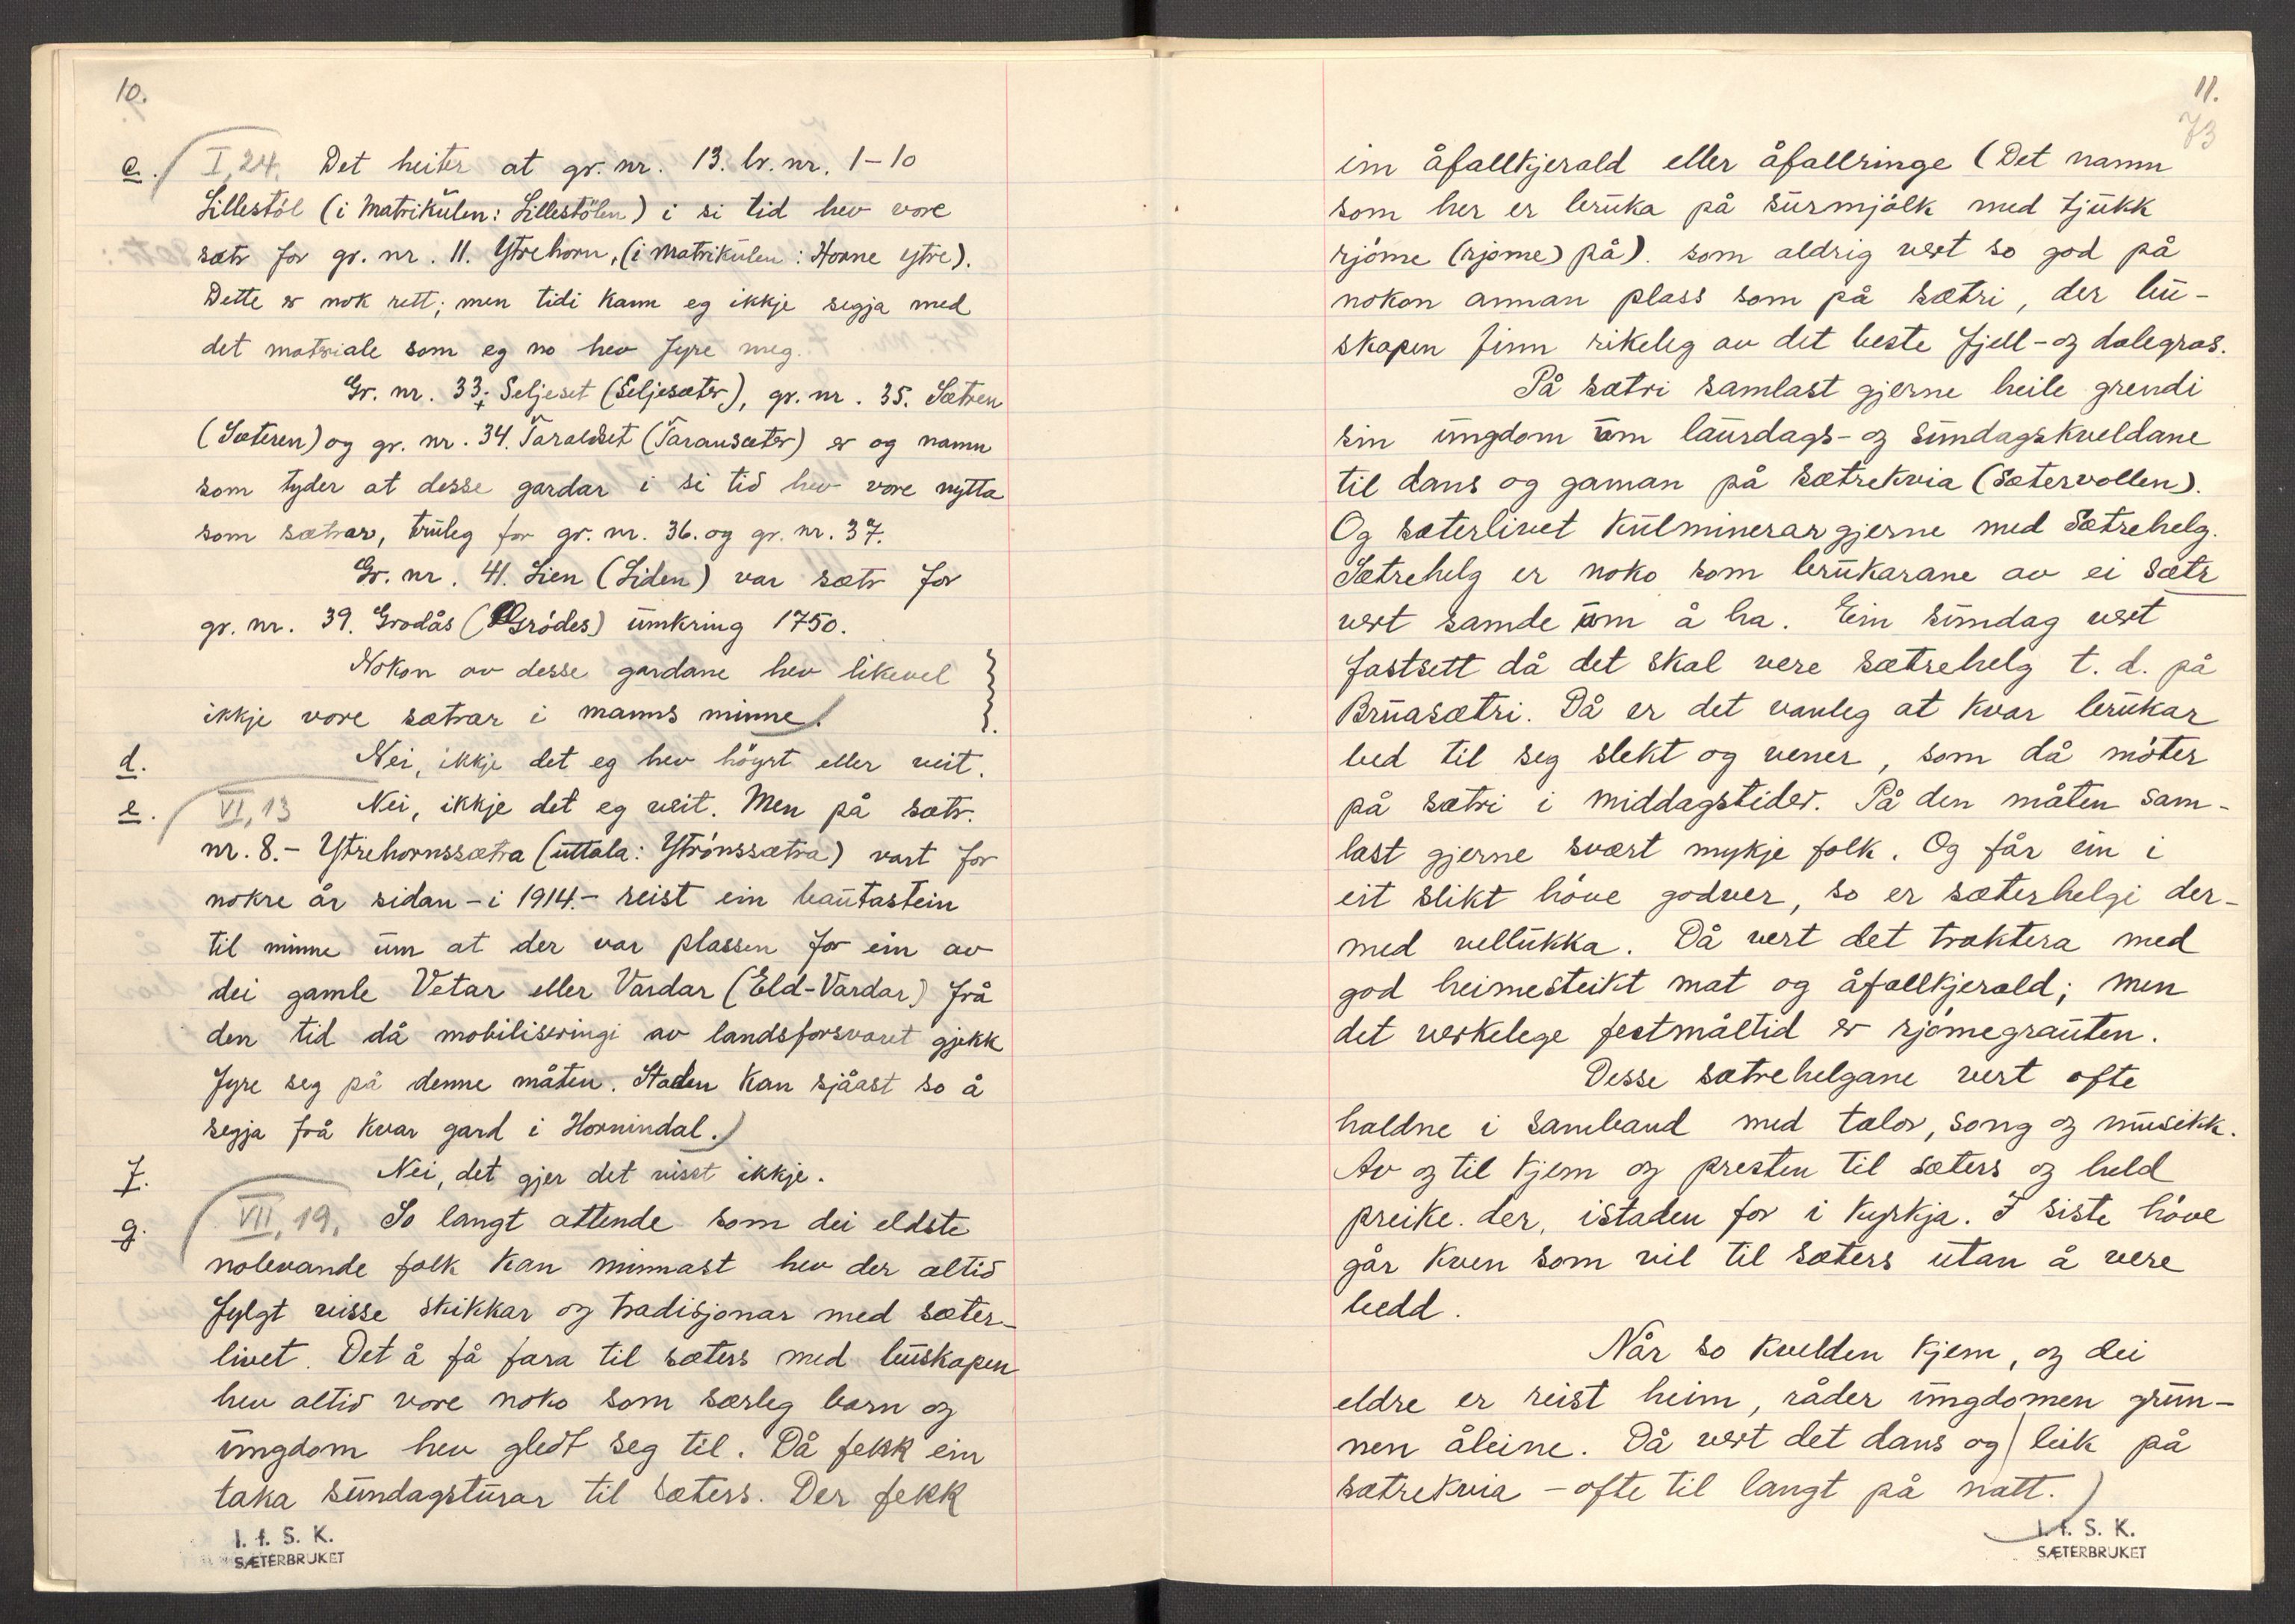 10.
c. I, 24. Det heiter at gr. nr. 13. br. nr. 1-10
Lillestöl (i Matrikulen: Lillestölen) i si tid hev vore
sætr for gr. nr. 11. Ytrehorn, (i Matrikulen: Horne ytre).
Dette er nok rett; men tidi kann eg ikkje segja med
det matriale som eg no hev fyre meg.
Gr. nr. 33. Seljeset (Seljesæter), gr. nr. 35. Sætren
(Sæteren) og gr. nr. 34. Taraldset (Taransæter) er og namn
som tyder at desse gardar i si tid hev vore nytta
som sætrar, truleg for gr. nr. 36. og gr. nr. 37.
Gr. nr. 41. Lien (Liden) var sætr for
gr. nr. 39. Grodås (Gródes) umkring 1750.
Nokon av desse gardane hev likevel
ikkje vore sætrar i manns minne.
d. Nei, ikkje det eg hev höyrt eller veit.
e. VI, 13 Nei, ikkje det eg veit. Men på sætr.
nr. 8.- Ytrehornssætra (uttala: Ytrónssætra) vart for
nokre år sidan - i 1914.- reist ein bautastein
til minne um at der var plassen for ein av
dei gamle Vetar eller Vardar (Eld-Vardar) frå
den tid då mobiliseringi av landsforsvaret gjekk
fyre seg på denne måten. Staden kan sjåast so å
segja frå kvar gard i Hornindal.)
f. Nei, det gjer det visst ikkje.
g. VII, 19. So langt attende som dei eldste
nolevande folk kan minnast hev der altid
fylgt visse skikkar og tradisjonar med sæter-
livet. Det å få fara til sæters med buskapen
hev altid vore noko som særleg barn og
ungdom hev gledt seg til. Då fekk ein
taka sundagsturar til sæters. Der fekk
I. f. S. K.
SÆTERBRUKET
11.
73
ein åfallkjerald eller åfallringe (Det namn
som her er bruka på surmjólk med tjukk
rjóme (rjome) på). som aldrig vert so god på
nokon annan plass som på sætri, der bu-
skapen finn rikeleg av det beste fjell- og dalegras.
På sætri samlast gjerne heile grendi
sin ungdom um laurdags- og sundagskveldane
til dans og gaman på sætrekvia (Sætervollen).
Og sæterlivet kulminerar gjerne med Sætrehelg.
Sætrehelg er noko som brukarane av ei sætr
vert samde um å ha. Ein sundag vert
fastsett då det skal vere sætrehelg t. d. på
Bruasætri. Då er det vanleg at kvar brukar
bed til seg slekt og vener, som då móter
på sætri i middagstider. På den måten sam-
last gjerne svært mykje folk. Og får ein i
eit slikt hóve godver, so er sæterhelgi der-
med vellukka. Då vert det traktera med
god heimesteikt mat og åfallkjerald; men
det verkelege festmåltid er rjómegrauten.
Desse sætrehelgane vert ofte
haldne i samband med talor, song og musikk.
Av og til kjem og presten til sæters og held
preike der, istaden for i kyrkja. I siste hóve
går kven som vil til sæters utan å vere
bedd.
Når so kvelden kjem, og dei
eldre er reist heim, råder ungdomen grun-
nen åleine. Då vert det dans og leik på
sætrekvia - ofte til langt på natt.)
I. f. S. K.
SÆTERBRUKET